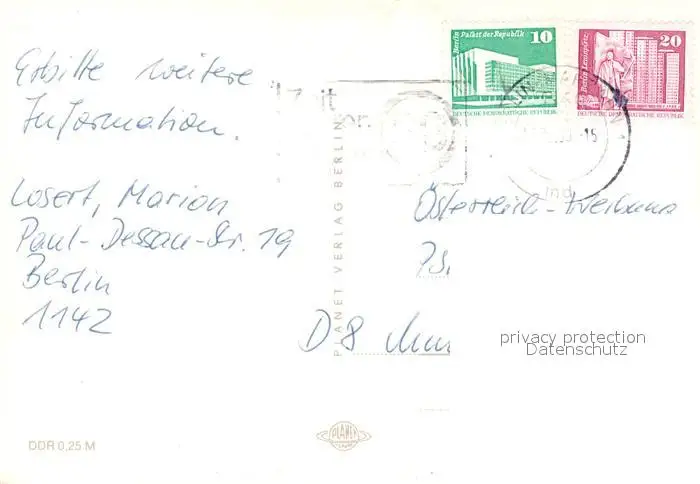 Erbitte weitere
Information.
Losert, Marion
Paul-Dessau-Str. 19
Berlin
1142
DDR 0,25 M
PLANET VERLAG BERLIN
PLANET
Berlin Palast der Republik 10
DEUTSCHE DEMOKRATISCHE REPUBLIK
Berlin Leninplatz 20
DEUTSCHE DEMOKRATISCHE REPUBLIK
-15
Österreich-Werbung
D 8
privacy protection
Datenschutz